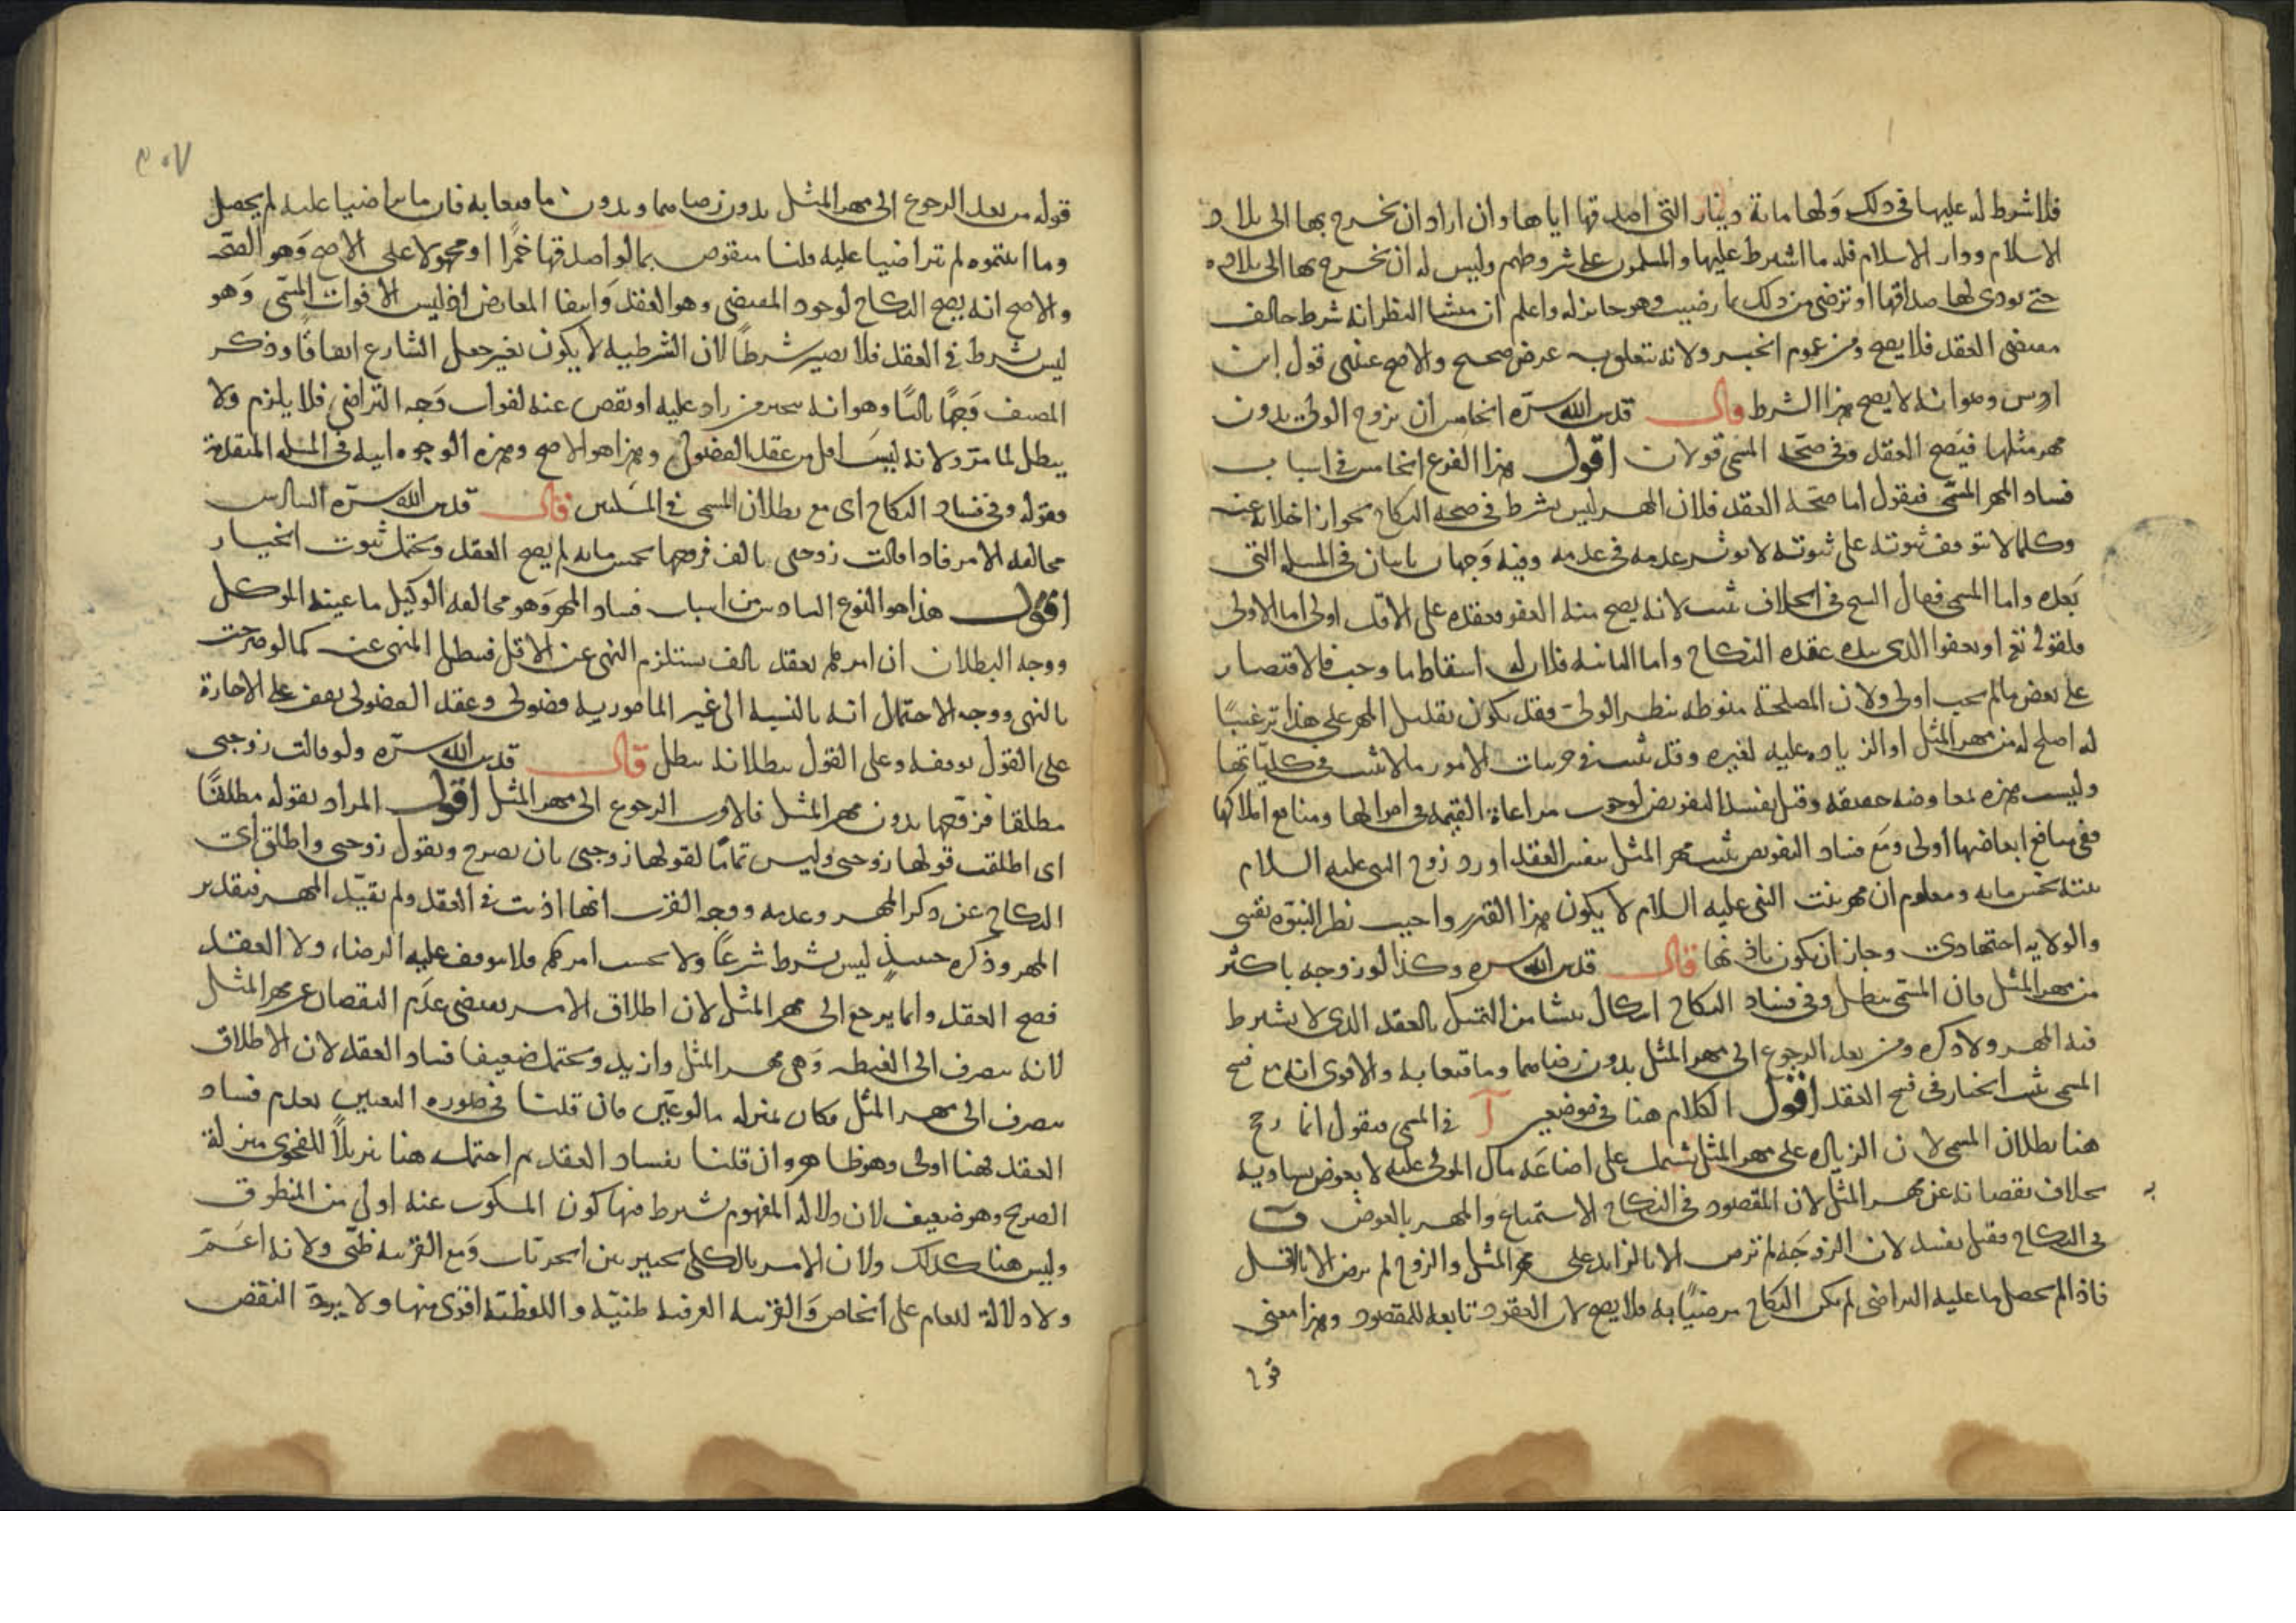 فلا شرط له عليها في ذلك ولها مائة دينار التي اصدقها اياها وان اراد ان يخرج بها الى بلاد
الاسلام ودار الاسلام فله ما اشترط عليها والمسلمون على شروطهم وليس له ان يخرج بها الى بلاده
حتى يودى لها صداقها او ترضى من ذلك بما رضيت وهو جايز له واعلم ان منشا النظر انه شرط خالف
مقتضى العقد فلا يصح ومن عموم الخبر ولانه يتعلق به غرض صحيح والاصح عندي قول ابن
ادريس وهو انه لا يصح هذا الشرط قال قدس الله سره الخامس ان يزوج الولى بدون
مهر مثلها فيصح العقد وفى صحة المسمى قولان اقول هذا الفرع الخامس في اسباب
فساد المهر المسمى فنقول اما صحة العقد فلان المهر ليس بشرط في صحة النكاح لجواز اخلائه عنه
وكلما لا يتوقف ثبوته على ثبوته لا يوثر عدمه في عدمه وفيه وجهان ياتيان في المسئلة التي
بعده واما المسمى فقال الشيخ في الخلاف يثبت لانه يصح منه العفو فعقده على الاقل اولى اما الاولى
فلقوله تع او يعفوا الذى بيده عقدة النكاح واما الثانية فلان له اسقاط ما وجب فالاقتصار
على بعض ما لم يجب اولى ولان المصلحة منوطة بنظر الولى فقد يكون تقليل المهر على هذا ترغيبا
له اصلح له من مهر المثل او الزيادة عليه لغيره وقد يثبت في جزئيات الامور ما لا يثبت في كلياتها
وليست هذه معاوضة حقيقة وقيل يفسد التفويض لوجوب مراعاة القيمة في اموالها ومنافع املاكها
ففى منافع ابعاضها اولى ومع فساد التفويض يثبت مهر المثل بنفس العقد اورد زوج النبى عليه السلام
بنته بخمس مائة ومعلوم ان مهر بنت النبى عليه السلام لا يكون هذا القدر واجيب نظر النبوة نقيى
والولاية اجتهادى وجاز ان يكون باذنها قال قدس الله سره وكذا لو زوجه باكثر
من مهر المثل فان المسمى يبطل وفى فساد النكاح اشكال ينشا من التمثيل بالعقد الذى لا يشترط
فيه المهر ولا ذكره ومن بعد الرجوع الى مهر المثل بدون رضاهما وما قنعا به والاقوى انه مع فسخ
المسمى يثبت الخيار في فسخ العقد اقول الكلام هنا في موضعين آ في المسمى فنقول انما رجح
هنا بطلان المسمى لان الزيادة على مهر المثل يشتمل على اضاعة مال المولى عليه لا بعوض يساويه
بخلاف نقصانه عن مهر المثل لان المقصود في النكاح الاستمتاع والمهر بالعوض ب
في النكاح فقيل يفسد لان الزوجة لم ترض الا بالزايد على مهر المثل والزوج لم يرض الا بالاقل
فاذا لم يحصل ما عليه التراضى لم يكن النكاح مرضيا به فلا يصح لان العقود تابعة للمقصود وهذا معنى
قوله من بعد الرجوع الى مهر المثل بدون رضاهما وبدون ما قنعا به فان ما تراضيا عليه لم يحصل
وما اثبتموه لم يتراضيا عليه قلنا منقوض بما لو اصدقها خمرا او مجهولا على الاصح وهو الصحة
والاصح انه يصح النكاح لوجود المقتضى وهو العقد وانتفا المعارض اذ ليس الا فوات المسمى وهو
ليس بشرط في العقد فلا يصير شرطا لان الشرطية لا يكون بغير جعل الشارع اتفاقا وذكر
المصنف وجها ثالثا وهو انه يتخير من زاد عليه او نقص عنه لفوات وجه التراضى فلا يلزم ولا
يبطل لما مر ولانه ليس اقل من عقد الفضولى وهذا هو الاصح وهذه الوجوه اتية في المسئلة المتقدمة
فقوله وفى فساد النكاح اى مع بطلان المسمى في المسئلتين قال قدس الله سره السادس
مخالفة الامر فاذا قالت زوجني بالف فزوجها بخمس مائة لم يصح العقد ويحتمل ثبوت الخيار
اقول هذا هو النوع السادس من اسباب فساد المهر وهو مخالفة الوكيل ما عينه الموكل
ووجه البطلان ان امرهم بعقد بالف يستلزم النهى عن الاقل فيبطل المنهى عنه كما لو صرحت
بالنهى ووجه الاحتمال انه بالنسبة الى غير المامور به فضولى وعقد الفضولى يقف على الاجازة
على القول بوقفه وعلى القول ببطلانه يبطل قال قدس الله سره ولو قالت زوجنى
مطلقا فزوجها بدون مهر المثل فالاقرب الرجوع الى مهر المثل اقول المراد بقوله مطلقا
اى اطلقت قولها زوجنى وليس تماما لقولها زوجنى بان يصرح وبقول زوجنى واطلق اى
النكاح عن ذكر المهر وعدمه ووجه القرب انها اذنت في العقد ولم تقيد المهر فبتقدير
المهر وذكره حينئذ ليس بشرط شرعا ولا بحسب امرهم فلا يتوقف عليه الرضا ولا العقد
فصح العقد وانما يرجع الى مهر المثل لان اطلاق الامر يقتضى عدم النقصان عن مهر المثل
لانه ينصرف الى الغبطة وهى مهر المثل وازيد ويحتمل ضعيفا فساد العقد لان الاطلاق
ينصرف الى مهر المثل فكان بمنزلة ما لو عين فان قلنا في صورة التعيين بعدم فساد
العقد فهنا اولى وهو ظاهر وان قلنا بفساد العقد ثم احتمل هنا تنزيلا للفحوى منزلة
الصريح وهو ضعيف لان دلالة المفهوم شرط فيها كون المسكوت عنه اولى من المنطوق
وليس هنا كذلك ولان الامر بالكلى تخيير بين الجزئيات ومع القرينة ظنى ولانه اعم
ولا دلالة للعام على الخاص والقرينة العرفية ظنية واللفظية اقوى منها ولا يرد النقض